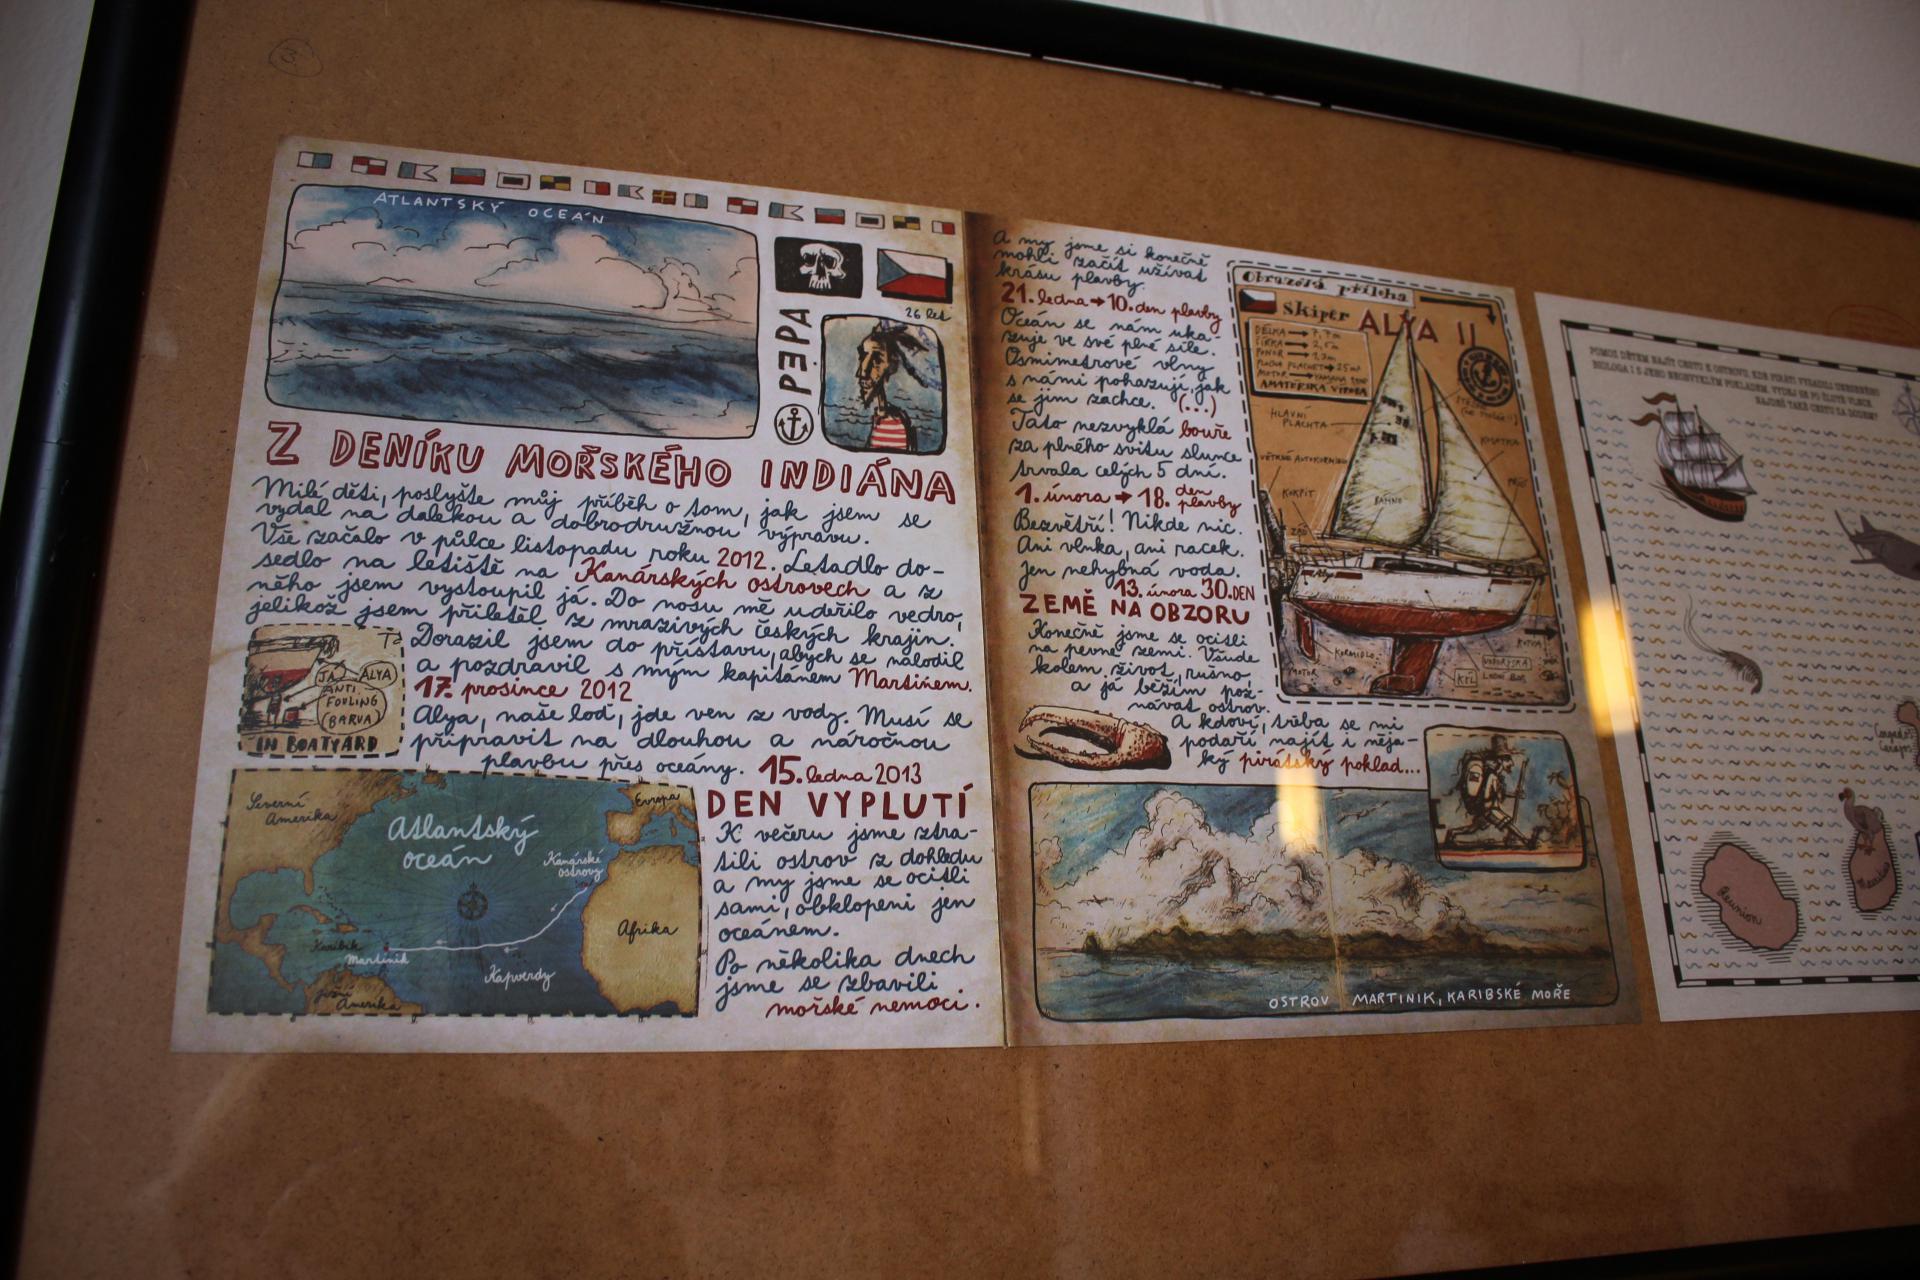 3.
ATLANTSKÝ OCEÁN
PEPA
26 let
Z DENÍKU MOŘSKÉHO INDIÁNA
Milé děti, poslyšte můj příběh o tom, jak jsem se
vydal na dalekou a dobrodružnou výpravu.
Vše začalo v půlce listopadu roku 2012. Letadlo do-
sedlo na letiště na Kanárských ostrovech a z
něho jsem vystoupil já. Do nosu mě udeřilo vedro,
jelikož jsem přiletěl z mrazivých českých krajin.
Dorazil jsem do přístavu, abych se nalodil
a pozdravil s mým kapitánem Martinem.
17. prosince 2012
Alya, naše loď, jde ven z vody. Musí se
připravit na dlouhou a náročnou
plavbu přes oceány.
JÁ
ALYA
ANTI
FOULING
BARVA
IN BOATYARD
15. ledna 2013
DEN VYPLUTÍ
K večeru jsme ztra-
tili ostrov z dohledu
a my jsme se ocitli
sami, obklopeni jen
oceánem.
Po několika dnech
jsme se zbavili
mořské nemoci.
Severní
Amerika
Evropa
Atlantský
oceán
Kanárské
ostrovy
Afrika
Karibik
Martinik
Kapverdy
Jižní
Amerika
A my jsme si konečně
mohli začít užívat
krásu plavby.
21. ledna → 10. den plavby
Oceán se nám uka-
zuje ve své plné síle.
Osmimetrové vlny
s námi pohazují, jak
se jim zachce. (...)
Tato nezvyklá bouře
za plného svitu slunce
trvala celých 5 dní.
1. února → 18. den
plavby
Bezvětří! Nikde nic.
Ani vlnka, ani racek.
Jen nehybná voda.
13. února 30. DEN
ZEMĚ NA OBZORU
Konečně jsme se ocitli
na pevné zemi. Všude
kolem život, rušno,
a já běžím poz-
návat ostrov.
A kdoví, třeba se mi
podaří najít i něja-
ký pirátský poklad...
Obrazová příloha
Skipr ALYA II
DÉLKA → 7,7m
ŠÍRKA → 2,5m
PONOR → 1,3m
PLOCHA PLACHET → 25m²
MOTOR →
AMATÉRSKÁ VÝROBA
HLAVNÍ
PLACHTA
KOSATKA
VĚTRNÉ AUTOKORMIDLO
KOKPIT
RAHNO
PŘÍĎ
ZÁĎ
Alya
KORMIDLO
MOTOR
KÝL
VODORYSKA
KOTVA
OSTROV MARTINIK, KARIBSKÉ MOŘE
POMOZ DĚTEM NAJÍT CESTU K OSTROVU, KDE PIRÁTI VYSADILI UKRADENÉHO
BIOLOGA I S JEHO NEOBVYKLÝM POKLADEM. VYDEJ SE PO ŽLUTÉ VLNCE.
NAJDEŠ TAKÉ CESTU NA SODEM?
Réunion
Cargados
Carajos